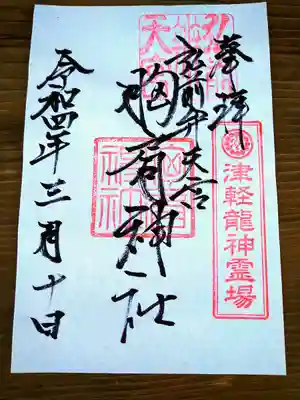 奉拝
津軽龍神霊場
弘前弁天宮
胸肩神社
令和四年三月十日